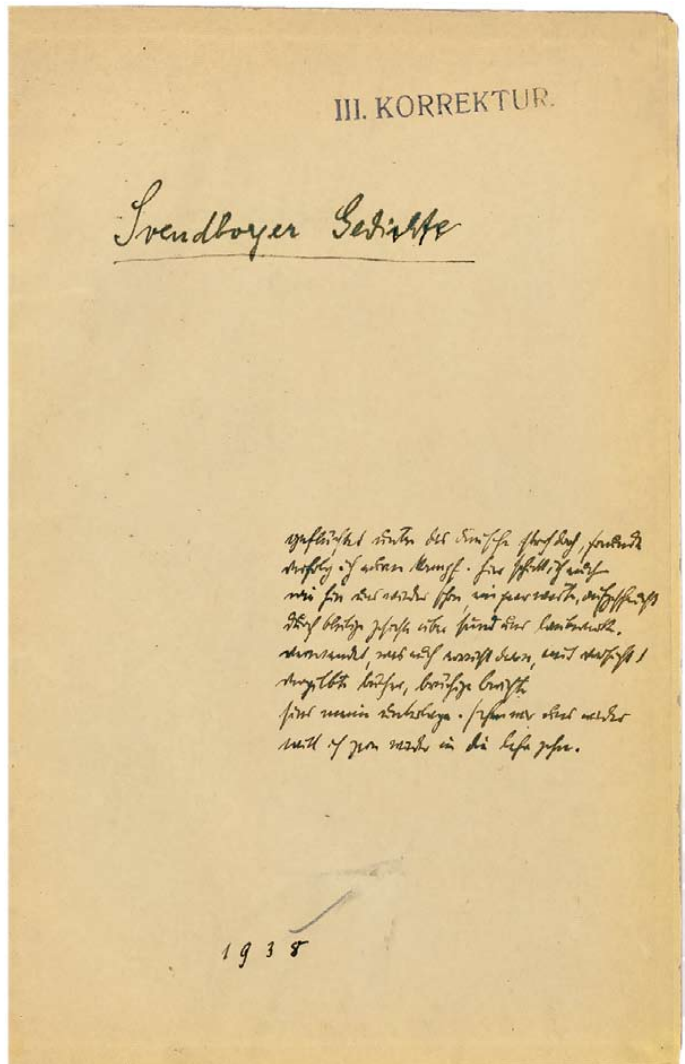 III. KORREKTUR.
Svendborger Gedichte
geflüchtet unter das dänische strohdach, freunde
verfolg ich euren kampf. hier schick ich euch
wie hin und wieder schon, ein paar worte, aufgescheucht
durch blutige gesichte über sund und laubwerk.
verwendet, was euch erreicht davon, mit vorsicht!
vergilbte bücher, brüchige berichte
sind meine unterlage. sehen wir uns wieder
will ich gern wieder in die lehre gehn.
1938